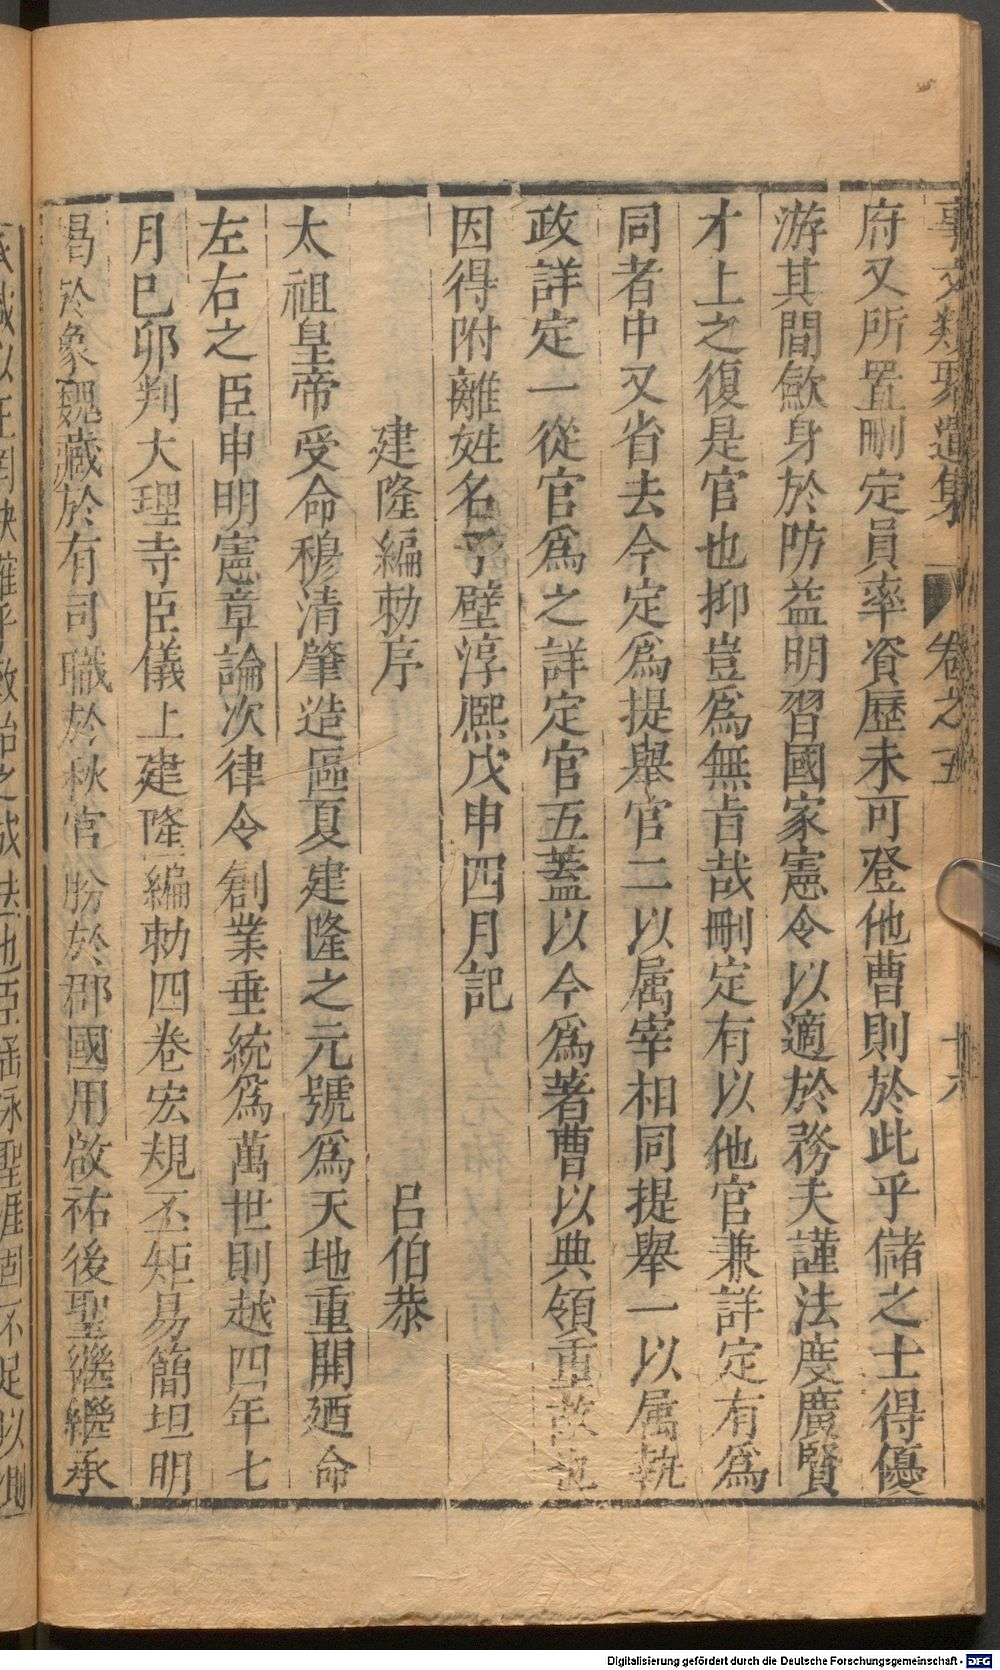 事文類聚遺集 卷之五 十六
府又所置刪定員率資歷未可登他曹則於此乎儲之士得優
游其間歛身於防益明習國家憲令以適於務夫謹法度廣賢
才上之復是官也抑豈爲無旨哉刪定有以他官兼詳定有爲
同者中又省去今定爲提舉官二以属宰相同提舉一以属執
政詳定一從官爲之詳定官五蓋以今爲著曹以典領重故也
因得附離姓名予壁淳熈戊申四月記
建隆編勅序 呂伯恭
太祖皇帝受命穆清肇造區夏建隆之元號爲天地重開廼命
左右之臣申明憲章論次律令創業垂統爲萬世則越四年七
月巳卯判大理寺臣儀上建隆編勅四卷宏規丕矩易簡坦明
揭於象魏藏於有司職於秋官朌於郡國用啟祐後聖繼繼承
Digitalisierung gefördert durch die Deutsche Forschungsgemeinschaft - DFG